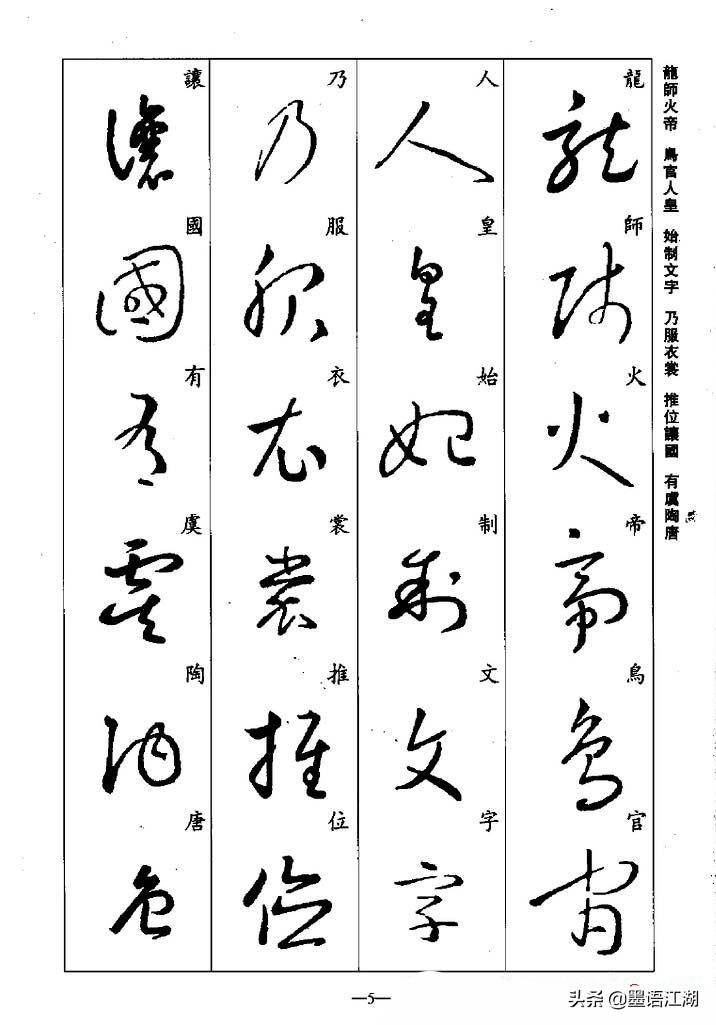 龍師火帝　鳥官人皇　始制文字　乃服衣裳　推位讓國　有虞陶唐
龍師火帝鳥官
人皇始制文字
乃服衣裳推位
讓國有虞陶唐
—5—
头条 @墨语江湖